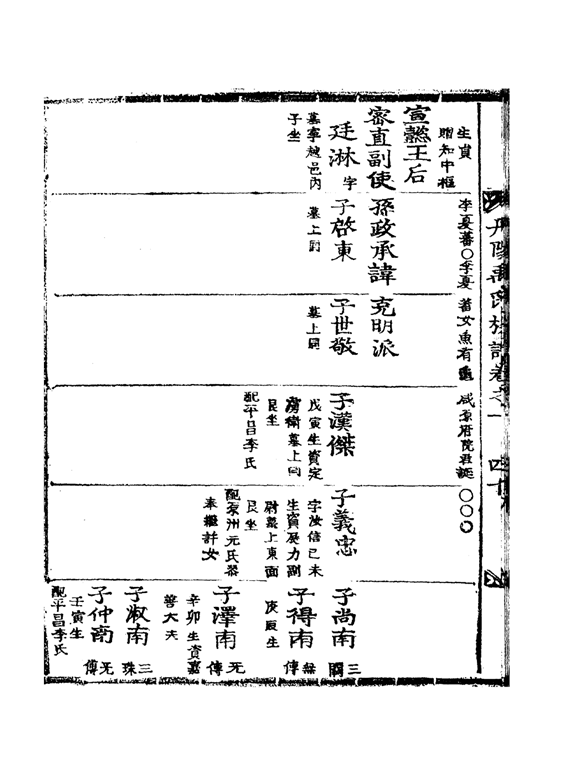 丹陽禹氏族譜卷之一 四十
生員
贈知中樞
李夏蕃○李夏蕃女魚有龜咸原府院君誕○○○
宣懿王后
密直副使孫政承諱克明派
廷淋
字
墓寧越邑內
子坐
子啓東
墓上同
子世敬
墓上同
子漢傑
戊寅生資定
衛墓上同
艮坐
配平昌李氏
子義忠
字汝信己未
生資展力副
尉墓上東面
艮坐
配原州元氏
奉繼許女
子尚南
三
子得南
無傳
庚辰生
子澤南
无傳
辛卯生資嘉
善大夫
子淑南
三珠
子仲南
无傳
壬寅生
配平昌李氏